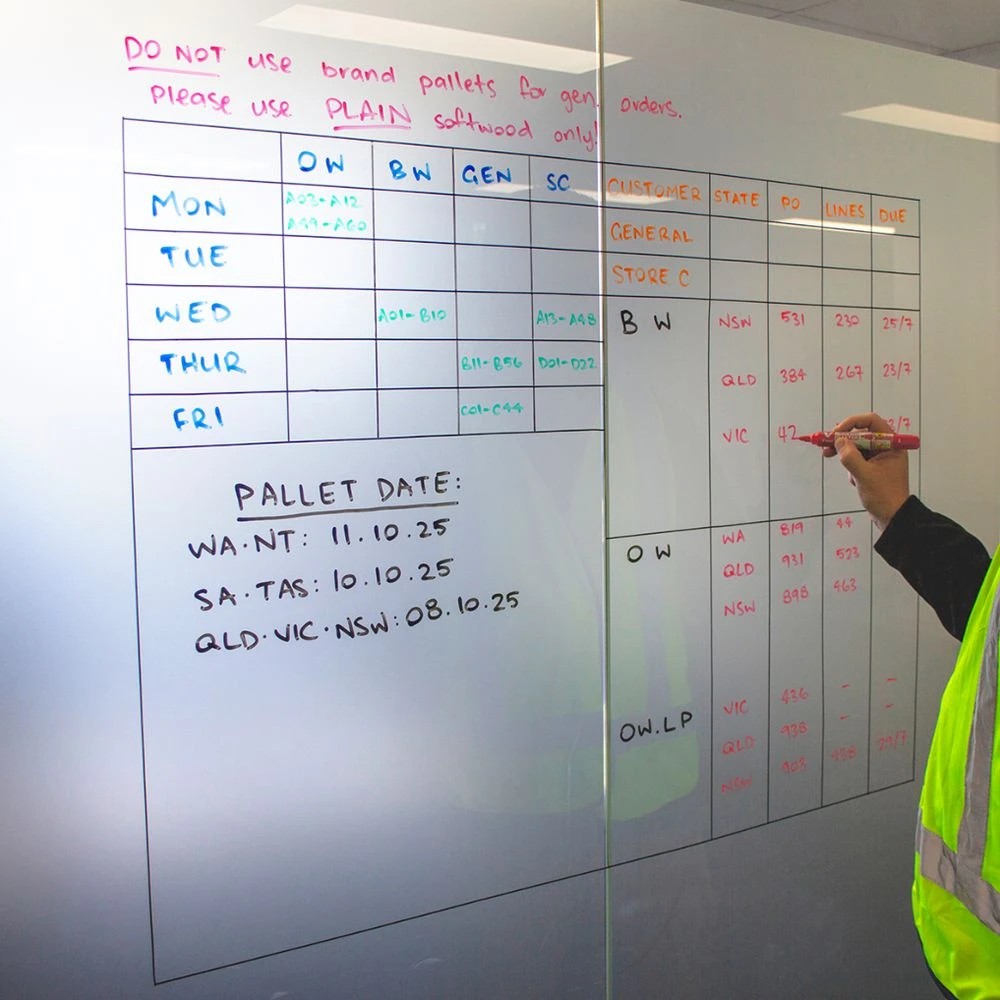 DO NOT use brand pallets for gen. orders.
please use PLAIN softwood only!
OW BW GEN SC
MON A03-A12
A49-A60
TUE
WED A01-B10 A13-A48
THUR B11-B56 D01-D22
FRI C01-C44
PALLET DATE:
WA.NT: 11.10.25
SA.TAS: 10.10.25
QLD.VIC.NSW: 08.10.25
CUSTOMER STATE PO LINES DUE
GENERAL
STORE C
BW NSW 531 230 25/7
QLD 384 267 23/7
VIC 42
OW WA 819 44
QLD 931 523
NSW 898 463
OW.LP VIC 436 - -
QLD 938 - -
NSW 903 438 29/7